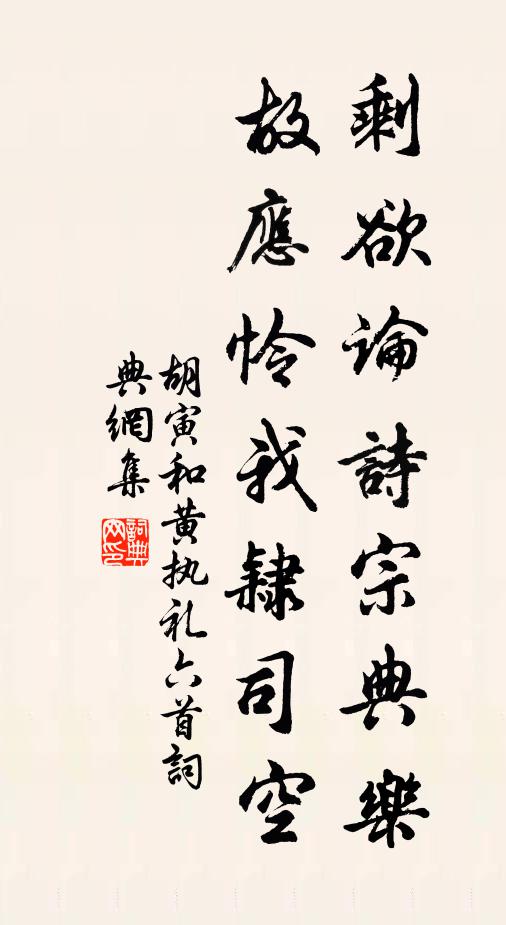 剩欲論詩宗典樂
故應怜我隸司空
胡寅和黄执礼六首詞
典網集
詞典網印